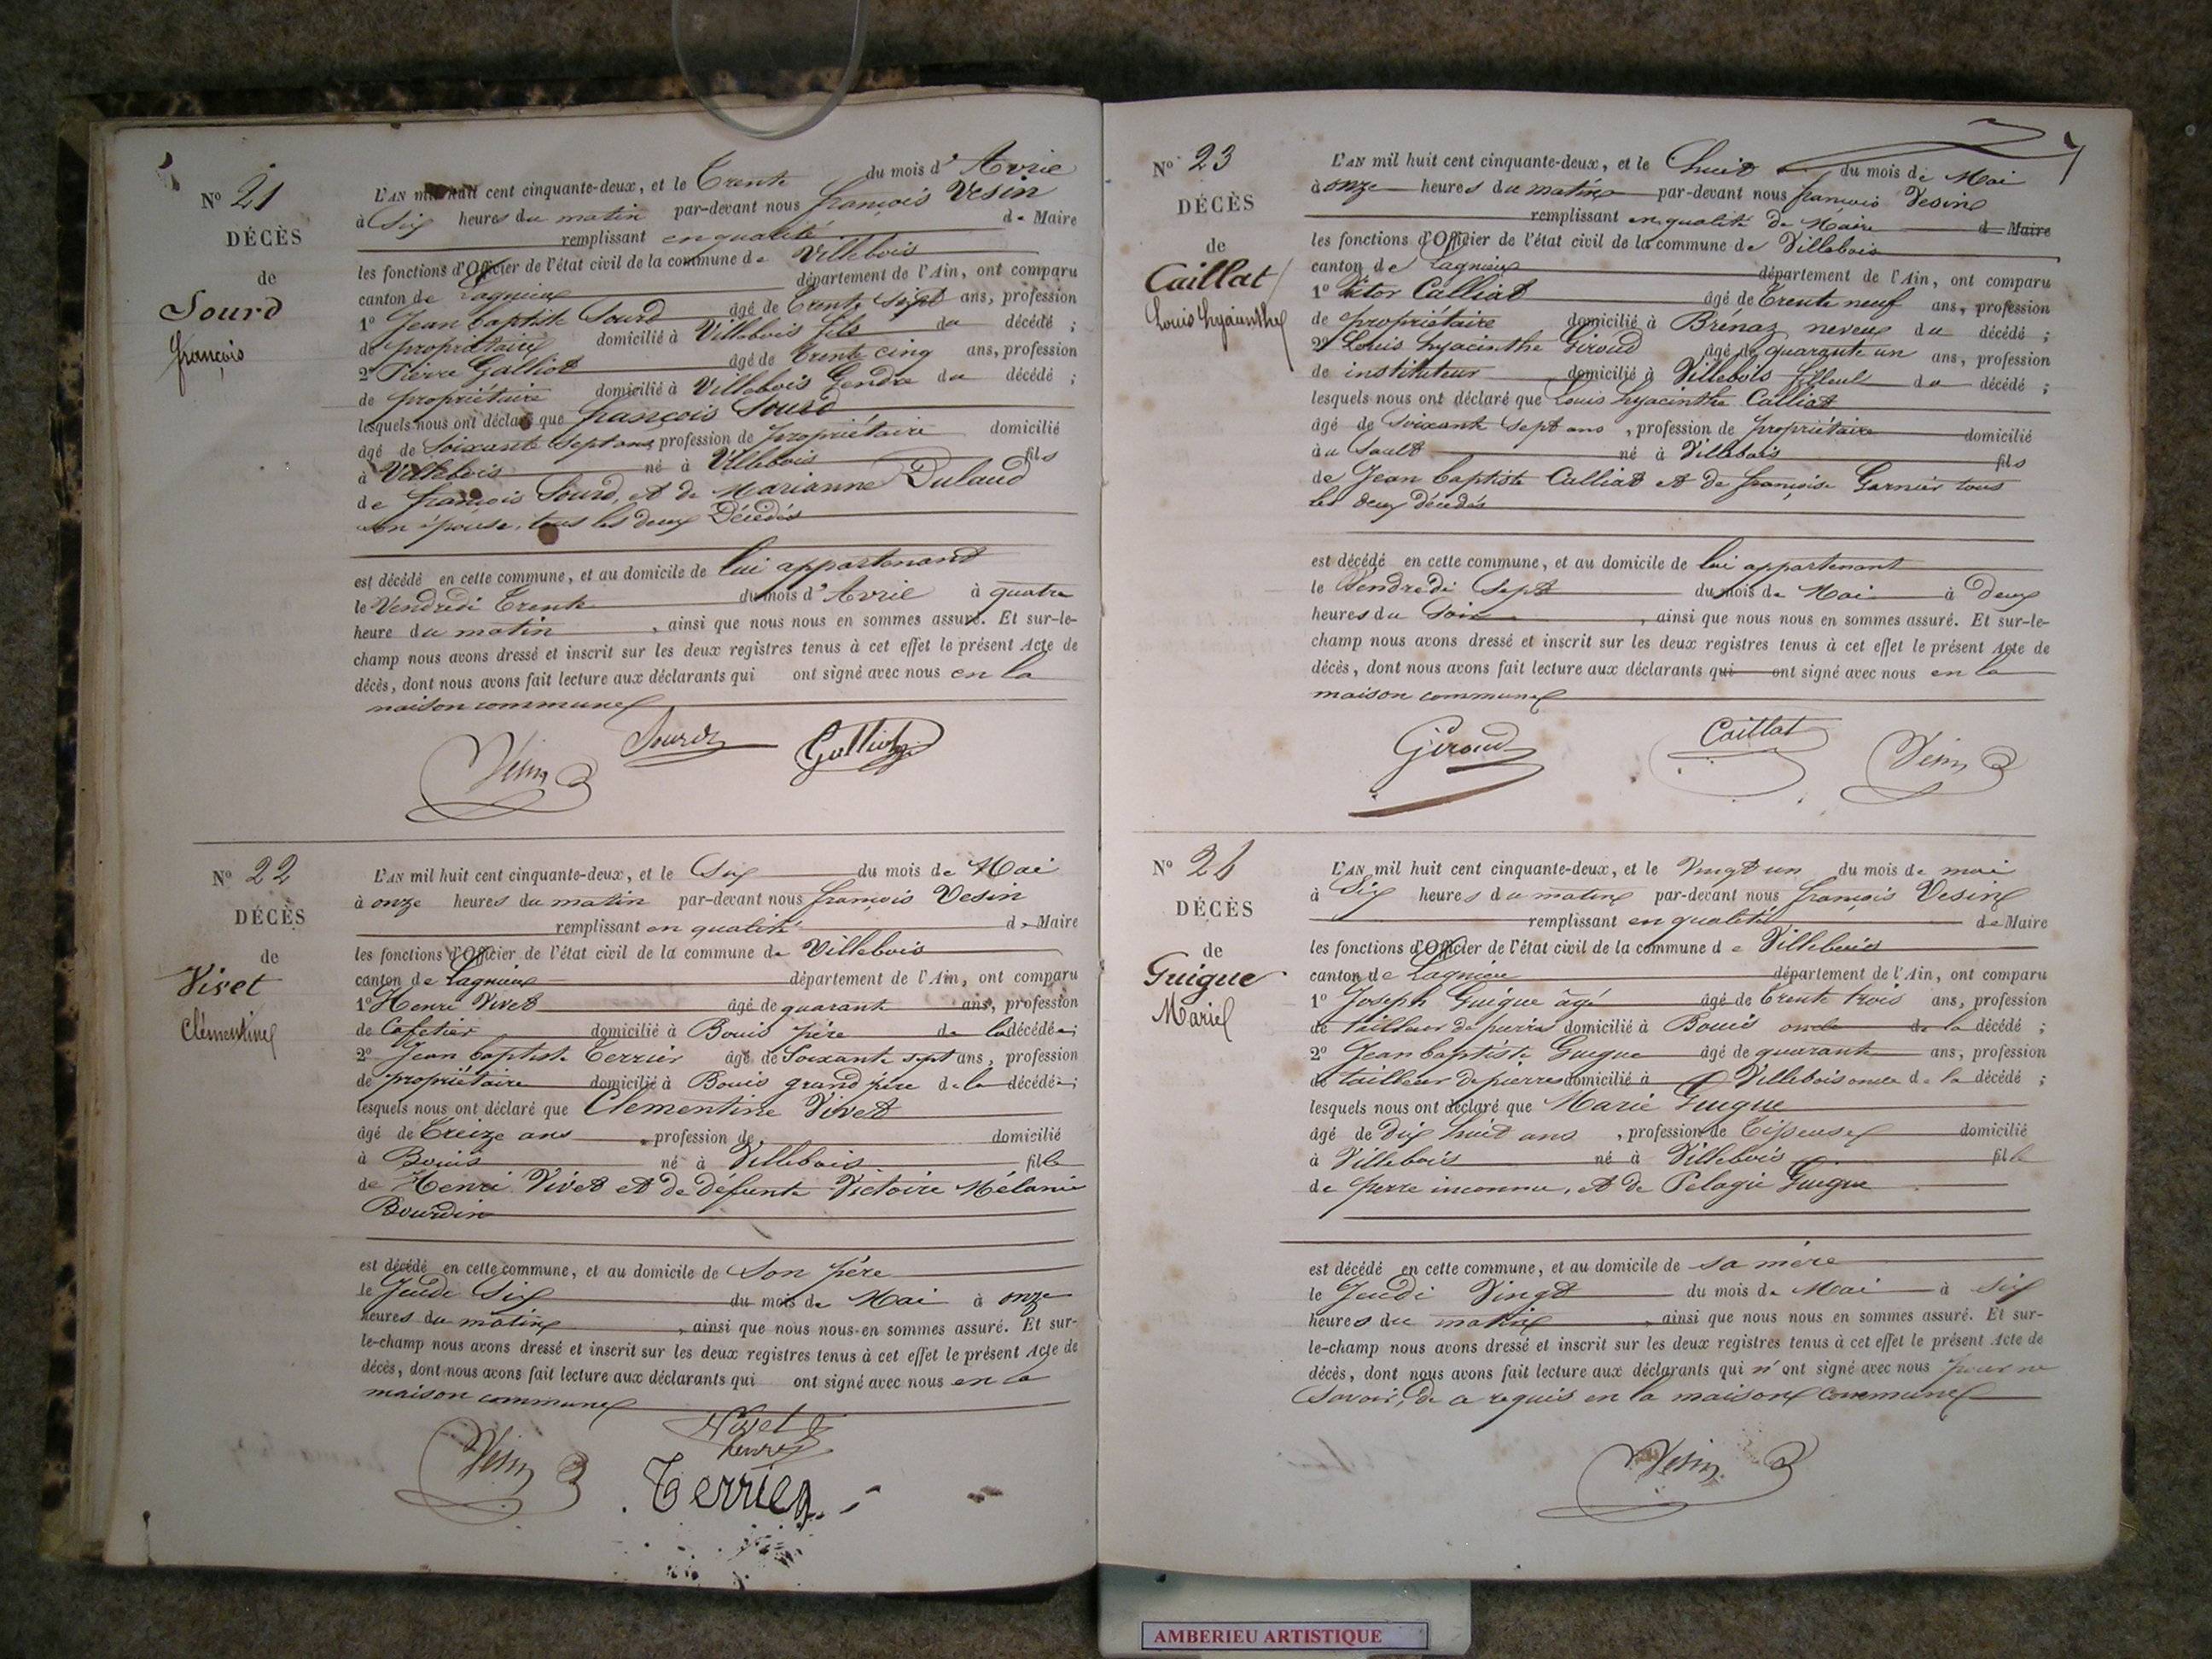 N° 21
DÉCÈS
de
Sourd
françois
L'AN mil huit cent cinquante-deux, et le Trente du mois d'Avril
à Six heures du matin par-devant nous françois Vesin
remplissant en qualité de Maire
les fonctions d'Officier de l'état civil de la commune de Villebois
canton de Lagnieux département de l'Ain, ont comparu
1° Jean baptiste Sourd âgé de Trente Sept ans, profession
de propriétaire domicilié à Villebois fils du décédé ;
2° Pierre Galliot âgé de trente cinq ans, profession
de propriétaire domicilié à Villebois Gendre du décédé ;
lesquels nous ont déclaré que françois Sourd
âgé de Soixante Sept ans, profession de propriétaire domicilié
à Villebois né à Villebois fils
de françois Sourd, et de Marianne Dulaud
son épouse, tous les deux Décédés
est décédé en cette commune, et au domicile de lui appartenant
le Vendredi Trente du mois d'Avril à quatre
heure du matin, ainsi que nous nous en sommes assuré. Et sur-le-
champ nous avons dressé et inscrit sur les deux registres tenus à cet effet le présent Acte de
décès, dont nous avons fait lecture aux déclarants qui ont signé avec nous en la
maison commune
Vesin Sourd Galliot
N° 22
DÉCÈS
de
Vivet
Clémentine
L'AN mil huit cent cinquante-deux, et le Six du mois de Mai
à onze heures du matin par-devant nous françois Vesin
remplissant en qualité de Maire
les fonctions d'Officier de l'état civil de la commune de Villebois
canton de Lagnieux département de l'Ain, ont comparu
1° Henri Vivet âgé de quarante ans, profession
de Cafetier domicilié à Bouis père de la décédée;
2° Jean baptiste Terrier âgé de Soixante sept ans, profession
de propriétaire domicilié à Bouis grand père de la décédée;
lesquels nous ont déclaré que Clementine Vivet
âgé de Treize ans, profession de domicilié
à Bouis né à Villebois fille
de Henri Vivet et de défunte Victoire Mélanie
Bourdin
est décédé en cette commune, et au domicile de Son père
le Jeudi Six du mois de Mai à onze
heures du matin, ainsi que nous nous en sommes assuré. Et sur-
le-champ nous avons dressé et inscrit sur les deux registres tenus à cet effet le présent Acte de
décès, dont nous avons fait lecture aux déclarants qui ont signé avec nous en la
maison commune
Vesin Vivet
henri
Terrier
N° 23
DÉCÈS
de
Caillat
Louis hyacinthe
L'AN mil huit cent cinquante-deux, et le huit du mois de Mai
à onze heures du matin par-devant nous françois Vesin
remplissant en qualité de Maire d Maire
les fonctions d'Officier de l'état civil de la commune de Villebois
canton de Lagnieux département de l'Ain, ont comparu
1° Victor Calliat âgé de Trente neuf ans, profession
de propriétaire domicilié à Brénaz neveux du décédé ;
2° Louis hyacinthe Giroud âgé de quarante un ans, profession
de instituteur domicilié à Villebois filleul du décédé ;
lesquels nous ont déclaré que Louis hyacinthe Calliat
âgé de Soixante Sept ans, profession de propriétaire domicilié
au Sault né à Villebois fils
de Jean baptiste Calliat et de françoise Garnier tous
les deux décédés
est décédé en cette commune, et au domicile de lui appartenant
le Vendredi Sept du mois de Mai à Deux
heures du Soir, ainsi que nous nous en sommes assuré. Et sur-le-
champ nous avons dressé et inscrit sur les deux registres tenus à cet effet le présent Acte de
décès, dont nous avons fait lecture aux déclarants qui ont signé avec nous en la
maison commune
Giroud Caillat Vesin
N° 24
DÉCÈS
de
Guigue
Marie
L'AN mil huit cent cinquante-deux, et le Vingt un du mois de mai
à Six heures du matin par-devant nous françois Vesin
remplissant en qualité de Maire
les fonctions d'Officier de l'état civil de la commune de Villebois
canton de Lagnieu département de l'Ain, ont comparu
1° Joseph Guigue âgé âgé de Trente trois ans, profession
de tailleur de pierre domicilié à Bouis oncle de la décédé ;
2° Jean baptiste Guigue âgé de quarante ans, profession
de tailleur de pierres domicilié à Villebois oncle de la décédé ;
lesquels nous ont déclaré que Marie Guigue
âgé de dix huit ans, profession de Tisseuse domicilié
à Villebois né à Villebois fille
de perre inconnu, et de Pelagie Guigue
est décédé en cette commune, et au domicile de sa mère
le Jeudi Vingt du mois de Mai à Six
heures du matin, ainsi que nous nous en sommes assuré. Et sur-
le-champ nous avons dressé et inscrit sur les deux registres tenus à cet effet le présent Acte de
décès, dont nous avons fait lecture aux déclarants qui n'ont signé avec nous pour ne
Savoir, de a requis en la maison commune
Vesin
AMBERIEU ARTISTIQUE